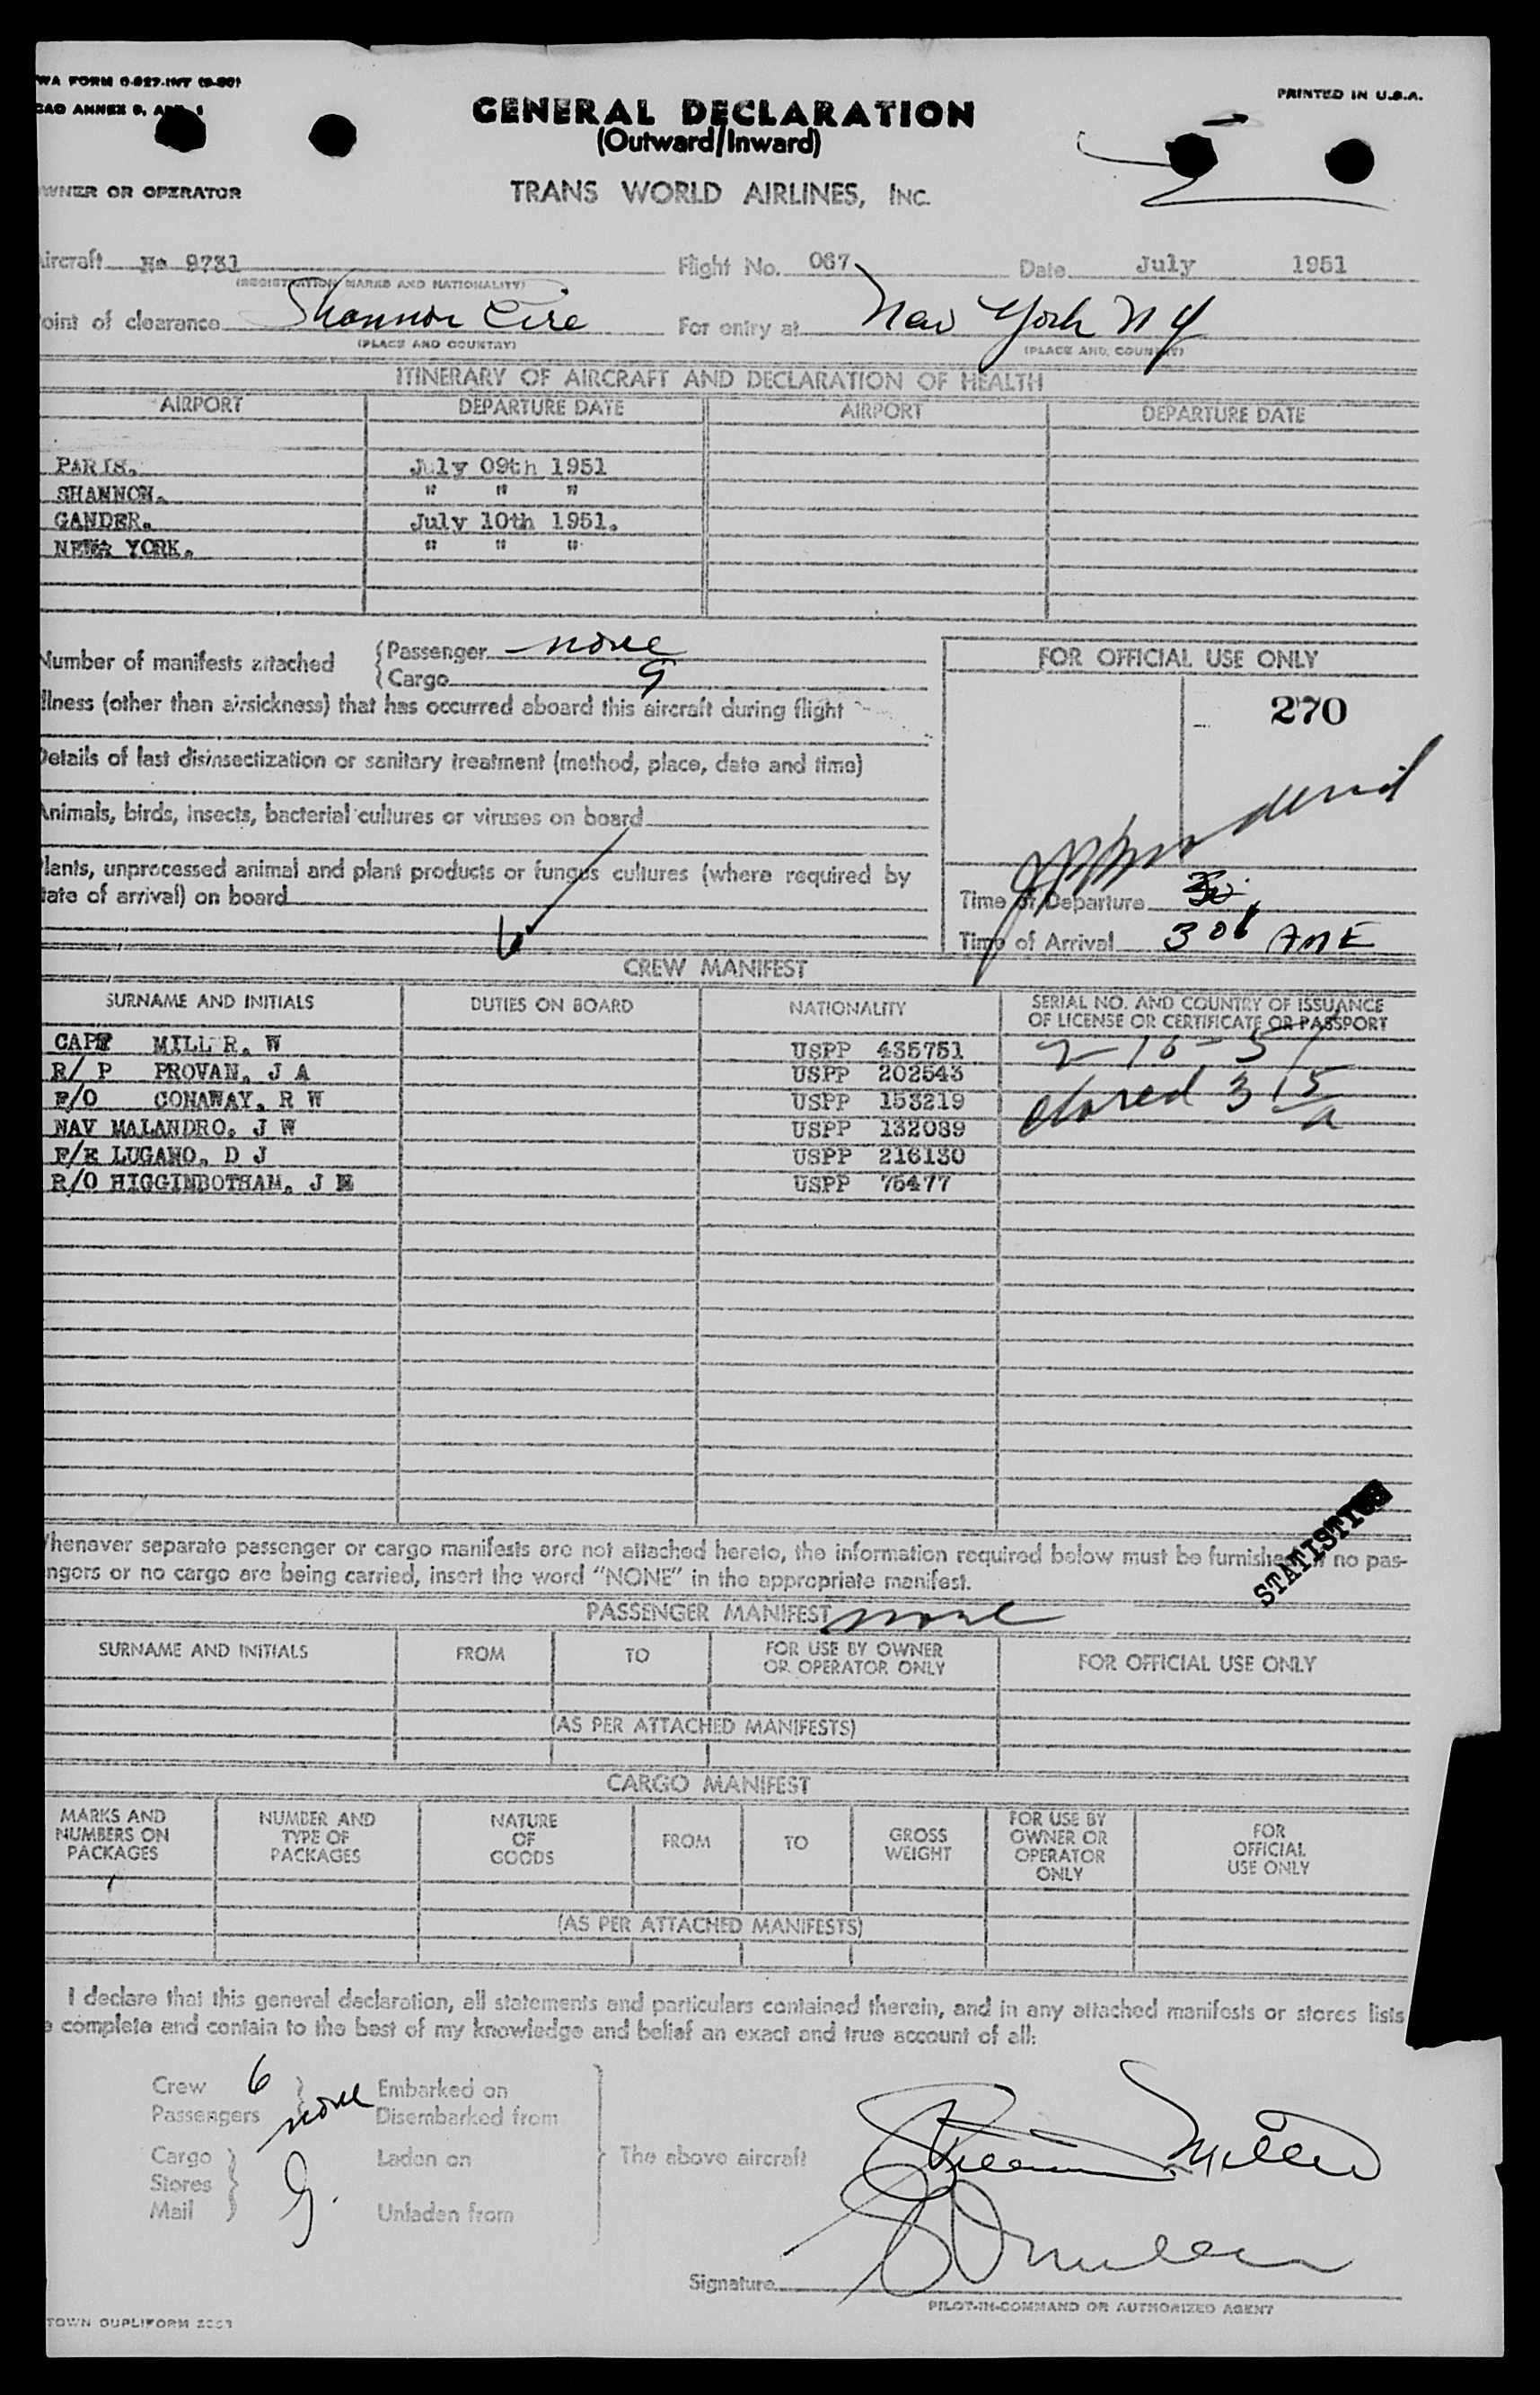 WA FORM 0-927-INT (9-50)
PRINTED IN U.S.A.
CAO ANNEX 9, APP. 1
GENERAL DECLARATION
(Outward/Inward)
WNER OR OPERATOR
TRANS WORLD AIRLINES, INC.
ircraft No 9731 Flight No. 067 Date July 1951
(REGISTRATION MARKS AND NATIONALITY)
oint of clearance Shannon Eire For entry at New York N Y
(PLACE AND COUNTRY) (PLACE AND COUNTRY)
ITINERARY OF AIRCRAFT AND DECLARATION OF HEALTH
AIRPORT DEPARTURE DATE AIRPORT DEPARTURE DATE
PARIS. July 09th 1951
SHANNON. " " "
GANDER. July 10th 1951.
NEW YORK. " " "
Number of manifests attached Passenger none
Cargo 9
FOR OFFICIAL USE ONLY
270
llness (other than airsickness) that has occurred aboard this aircraft during flight
Details of last disinsectization or sanitary treatment (method, place, date and time)
Animals, birds, insects, bacterial cultures or viruses on board
lants, unprocessed animal and plant products or fungus cultures (where required by
tate of arrival) on board
Time of Departure
Time of Arrival 306 AME
CREW MANIFEST
SURNAME AND INITIALS DUTIES ON BOARD NATIONALITY SERIAL NO. AND COUNTRY OF ISSUANCE
OF LICENSE OR CERTIFICATE OR PASSPORT
CAPT MILL R. W USPP 435751
R/ P PROVAN, J A USPP 202543
F/O CONAWAY, R W USPP 153219
NAV MALANDRO, J W USPP 132039
F/E LUGANO, D J USPP 216130
R/O HIGGINBOTHAM, J E USPP 75477
henever separate passenger or cargo manifests are not attached hereto, the information required below must be furnished. If no pas-
ngers or no cargo are being carried, insert the word "NONE" in the appropriate manifest.
STATISTICS
PASSENGER MANIFEST none
SURNAME AND INITIALS FROM TO FOR USE BY OWNER
OR OPERATOR ONLY FOR OFFICIAL USE ONLY
(AS PER ATTACHED MANIFESTS)
CARGO MANIFEST
MARKS AND
NUMBERS ON
PACKAGES
NUMBER AND
TYPE OF
PACKAGES
NATURE
OF
GOODS
FROM
TO
GROSS
WEIGHT
FOR USE BY
OWNER OR
OPERATOR
ONLY
FOR
OFFICIAL
USE ONLY
(AS PER ATTACHED MANIFESTS)
I declare that this general declaration, all statements and particulars contained therein, and in any attached manifests or stores lists
e complete and contain to the best of my knowledge and belief an exact and true account of all:
Crew 6 Embarked on
Passengers none Disembarked from
Cargo Laden on The above aircraft
Stores
Mail Unladen from
Signature
PILOT-IN-COMMAND OR AUTHORIZED AGENT
TOWN DUPLIFORM